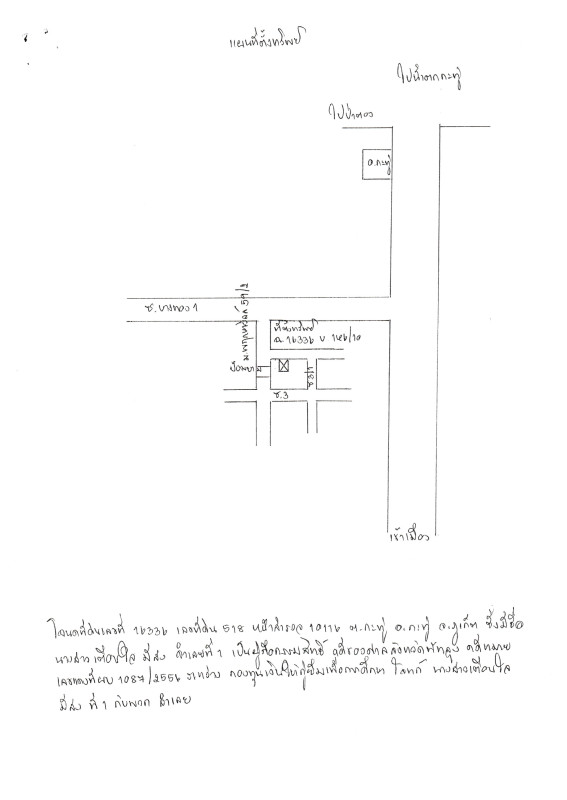 แผนที่ตั้งทรัพย์
ไปน้ำตกกะทู้
ไปป่าตอง
อ.กะทู้
ซ.บางทอง 1
ม.พฤกษชาติ 59/2
ที่ตั้งทรัพย์
ฉ. 16336 บ 126/10
ป้อมยาม
ซ.3/1
ซ.3
เข้าเมือง
โฉนดที่ดินเลขที่ 16336 เลขที่ดิน 518 หน้าสำรวจ 10116 ต.กะทู้ อ.กะทู้ จ.ภูเก็ต ซึ่งมีชื่อ
นางสาวเตือนใจ มีสง จำเลยที่ 1 เป็นผู้ถือกรรมสิทธิ์ คดีของศาลจังหวัดพัทลุง คดีหมาย
เลขแดงที่ผบ 1087/2556 ระหว่าง กองทุนเงินให้กู้ยืมเพื่อการศึกษา โจทก์ นางสาวเตือนใจ
มีสง ที่ 1 กับพวก จำเลย